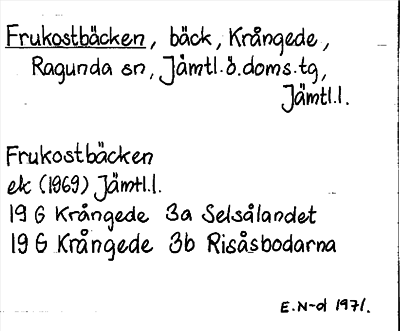 Frukostbäcken, bäck, Krångede,
Ragunda sn, Jämtl.ö.doms.tg,
Jämtl.l.
Frukostbäcken
ek (1969) Jämtl.l.
19 G Krångede 3a Selsålandet
19 G Krångede 3b Risåsbodarna
E.N-d 1971.